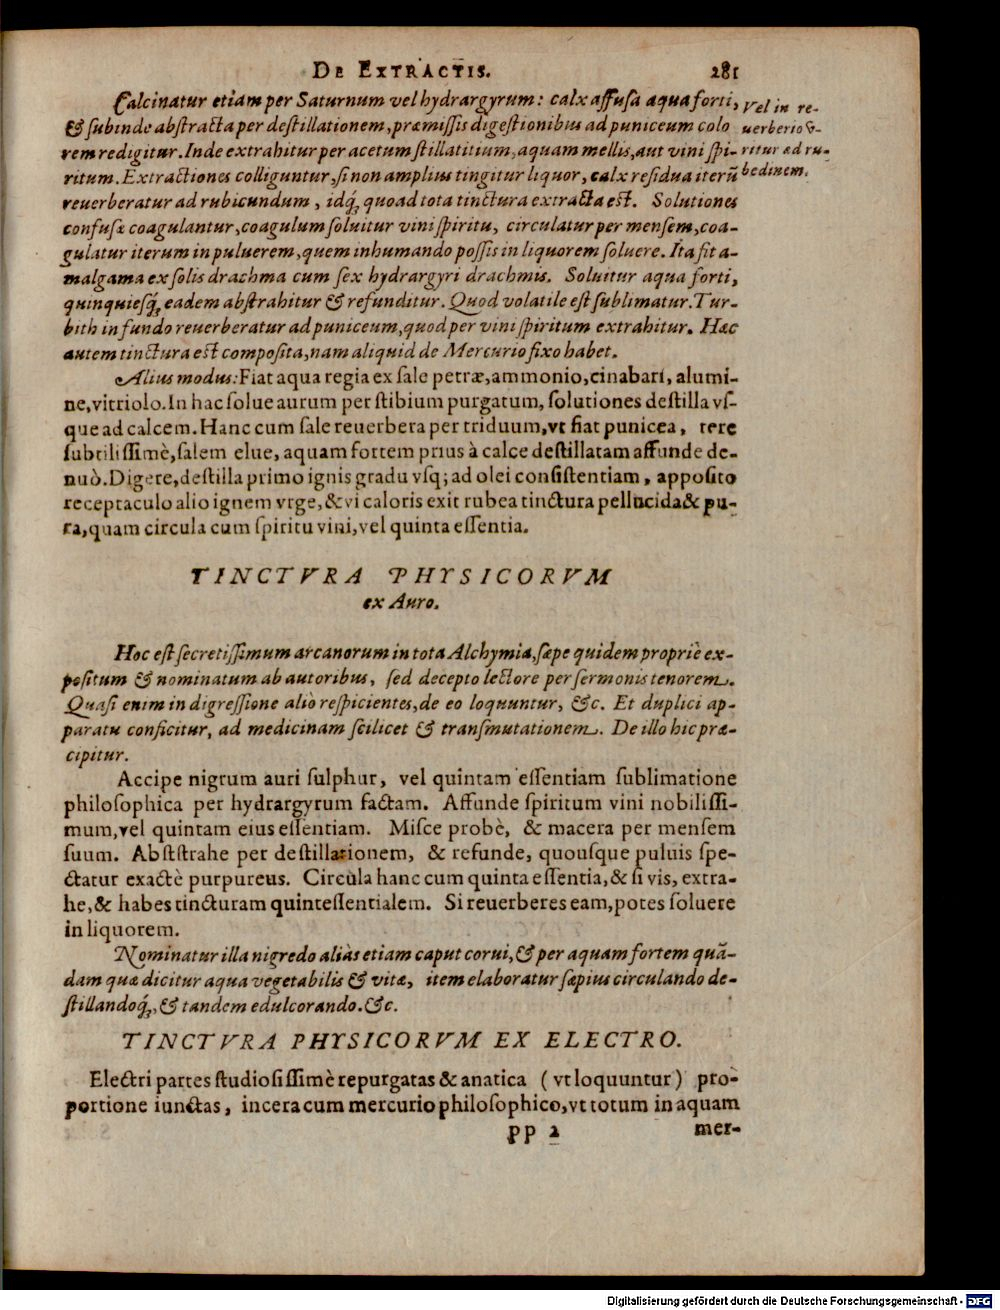 DE EXTRACTIS. 281
Calcinatur etiam per Saturnum vel hydrargyrum: calx affuſa aqua forti,
& ſubinde abſtracta per deſtillationem, præmiſſis digeſtionibus ad puniceum colo
rem redigitur. Inde extrahitur per acetum ſtillatitium, aquam mellis, aut vini ſpi-
ritum. Extractiones colliguntur, ſi non amplius tingitur liquor, calx reſidua iterũ
reuerberatur ad rubicundum, idq́; quoad tota tinctura extracta eſt. Solutiones
confuſæ coagulantur, coagulum ſoluitur vini ſpiritu, circulatur per menſem, coa-
gulatur iterum in puluerem, quem inhumando poſſis in liquorem ſoluere. Ita fit a-
malgama ex ſolis drachma cum ſex hydrargyri drachmis. Soluitur aqua forti,
quinquieſq́; eadem abſtrahitur & refunditur. Quod volatile eſt ſublimatur. Tur-
bith in fundo reuerberatur ad puniceum, quod per vini ſpiritum extrahitur. Hæc
autem tinctura eſt compoſita, nam aliquid de Mercurio fixo habet.
Vel in re-
uerberio v-
ritur ad ru-
bedinem.
Alius modus: Fiat aqua regia ex ſale petræ, ammonio, cinabari, alumi-
ne, vitriolo. In hac ſolue aurum per ſtibium purgatum, ſolutiones deſtilla vſ-
que ad calcem. Hanc cum ſale reuerbera per triduum, vt fiat punicea, tere
ſubtiliſſimè, ſalem elue, aquam fortem prius à calce deſtillatam affunde de-
nuò. Digere, deſtilla primo ignis gradu vſq; ad olei conſiſtentiam, appoſito
receptaculo alio ignem vrge, & vi caloris exit rubea tinctura pellucida & pu-
ra, quam circula cum ſpiritu vini, vel quinta eſſentia.
TINCTVRA PHYSICORVM
ex Auro.
Hoc eſt ſecretiſſimum arcanorum in tota Alchymia, ſæpe quidem propriè ex-
poſitum & nominatum ab autoribus, ſed decepto lectore per ſermonis tenorem.
Quaſi enim in digreſſione aliò reſpicientes, de eo loquuntur, &c. Et duplici ap-
paratu conficitur, ad medicinam ſcilicet & tranſmutationem. De illo hic præ-
cipitur.
Accipe nigrum auri ſulphur, vel quintam eſſentiam ſublimatione
philoſophica per hydrargyrum factam. Affunde ſpiritum vini nobiliſſi-
mum, vel quintam eius eſſentiam. Miſce probè, & macera per menſem
ſuum. Abſtſtrahe per deſtillationem, & refunde, quouſque puluis ſpe-
ctatur exactè purpureus. Circula hanc cum quinta eſſentia, & ſi vis, extra-
he, & habes tincturam quinteſſentialem. Si reuerberes eam, potes ſoluere
in liquorem.
Nominatur illa nigredo aliàs etiam caput corui, & per aquam fortem quã-
dam quæ dicitur aqua vegetabilis & vitæ, item elaboratur ſæpius circulando de-
ſtillandoq́;, & tandem edulcorando. &c.
TINCTVRA PHYSICORVM EX ELECTRO.
Electri partes ſtudioſiſſimè repurgatas & anatica (vt loquuntur) pro-
portione iunctas, incera cum mercurio philoſophico, vt totum in aquam
pp 2 mer-
Digitalisierung gefördert durch die Deutsche Forschungsgemeinschaft - DFG